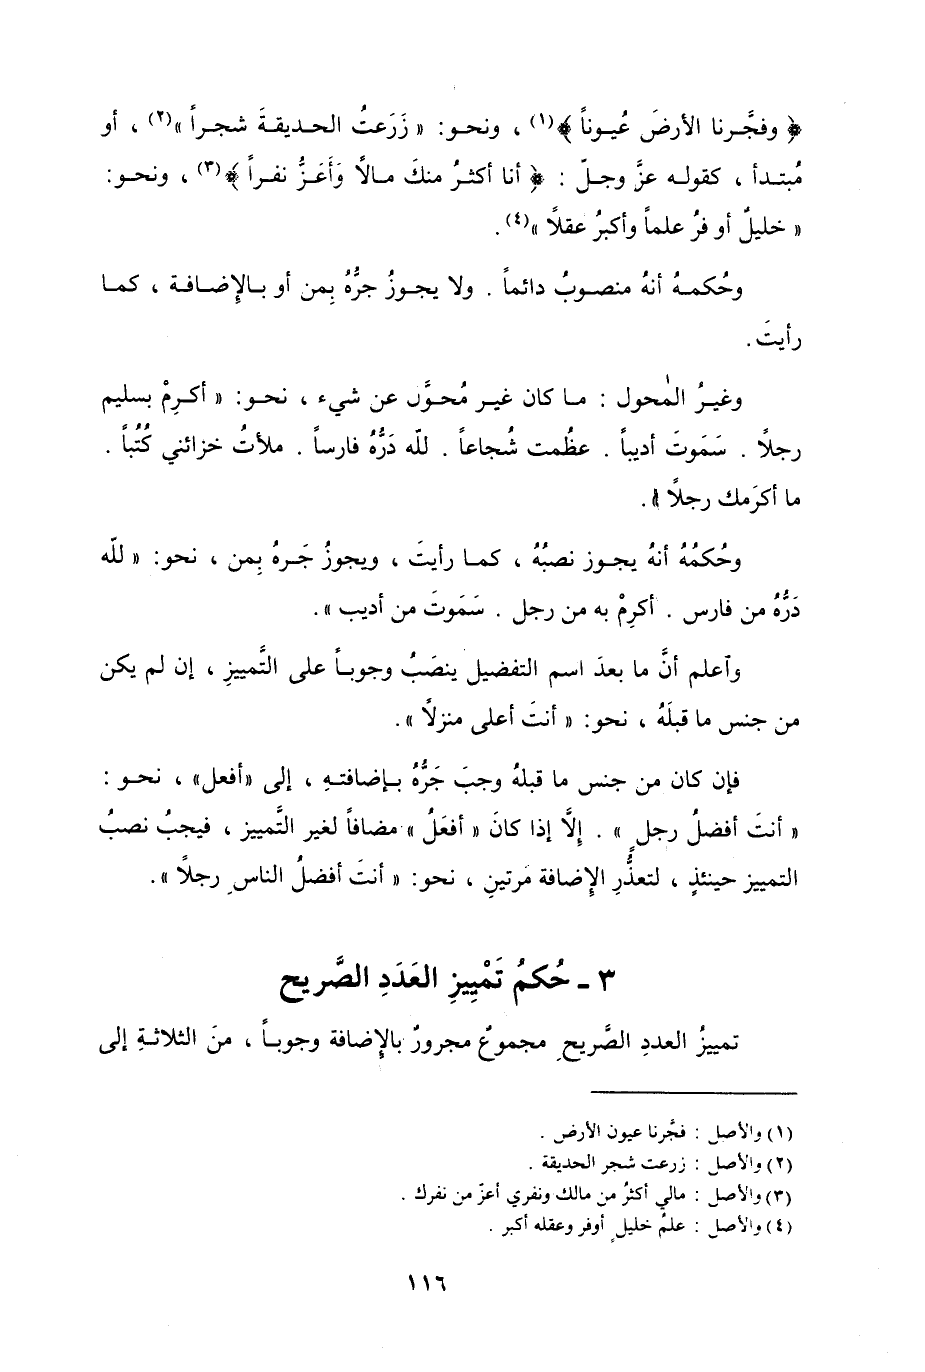 ﴿ وفجَّرنا الأرضَ عُيوناً ﴾(١) ، ونحو: « زَرَعتُ الحديقةَ شجراً »(٢) ، أو
مُبتدأ ، كقوله عزَّ وجلّ : ﴿ أنا أكثرُ منكَ مالاً وَأَعَزُّ نفراً ﴾(٣) ، ونحو:
« خليلٌ أوفرُ علماً وأكبرُ عقلاً »(٤).
وحُكمهُ أنهُ منصوبٌ دائماً . ولا يجوزُ جرُّهُ بِمن أو بالإضافة ، كما
رأيتَ .
وغيرُ المُحول : ما كان غير مُحوَّل عن شيء ، نحو: « أكرِمْ بسليم
رجلاً . سَمَوتَ أديباً . عظُمت شُجاعاً . لله دَرُّهُ فارساً . ملأتُ خزائني كُتُباً .
ما أكرَمك رجلاً » .
وحُكمُهُ أنهُ يجوز نصبُهُ ، كما رأيتَ ، ويجوزُ جَرهُ بِمن ، نحو: « لله
دَرُّهُ من فارس . أكرِمْ به من رجل . سَمَوتَ من أديب ».
وأعلم أنَّ ما بعدَ اسم التفضيل ينصَبُ وجوباً على التَّمييزِ ، إن لم يكن
من جنس ما قبلَهُ ، نحو: « أنتَ أعلى منزلاً ».
فإن كان من جنس ما قبلهُ وجبَ جَرُّهُ بإضافتهِ ، إلى «أفعل» ، نحو :
« أنتَ أفضلُ رجلٍ » . إلَّا إذا كانَ « أفعَلُ » مضافاً لغير التَّمييز ، فيجبُ نصبُ
التمييز حينئذٍ ، لتعذُّرِ الإضافة مَرتينِ ، نحو: « أنتَ أفضلُ الناسِ رجلاً ».
٣ ـ حُكمُ تَمْيِيزِ العَدَدِ الصَّريح
تمييزُ العددِ الصَّريحِ مجموعٌ مجرورٌ بالإضافة وجوباً ، منَ الثلاثةِ إلى
(١) والأصل : فجَّرنا عيون الأرض .
(٢) والأصل : زرعت شجر الحديقة .
(٣) والأصل : مالي أكثرُ من مالك ونفري أعزّ من نفرك .
(٤) والأصل : علمُ خليلٍ أوفر وعقله أكبر .
١١٦